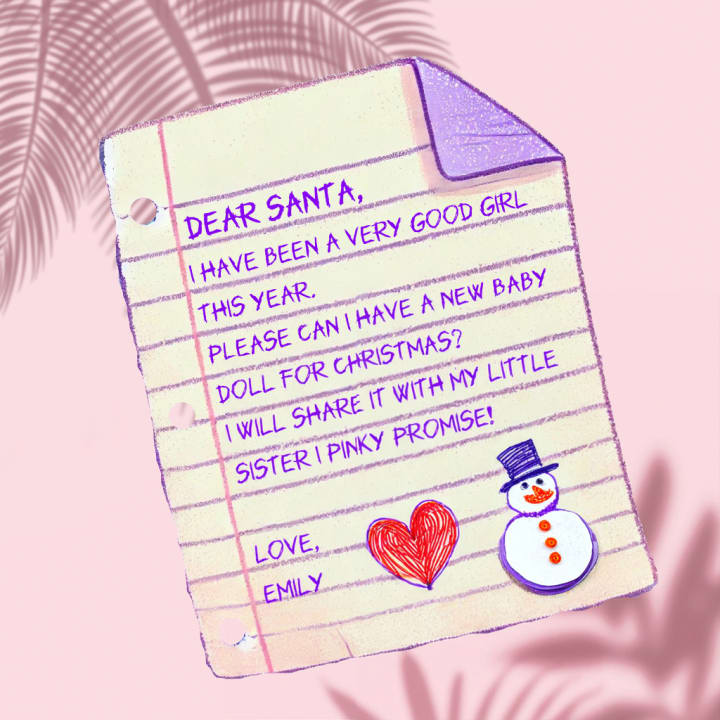 DEAR SANTA,
I HAVE BEEN A VERY GOOD GIRL
THIS YEAR.
PLEASE CAN I HAVE A NEW BABY
DOLL FOR CHRISTMAS?
I WILL SHARE IT WITH MY LITTLE
SISTER I PINKY PROMISE!
LOVE,
EMILY